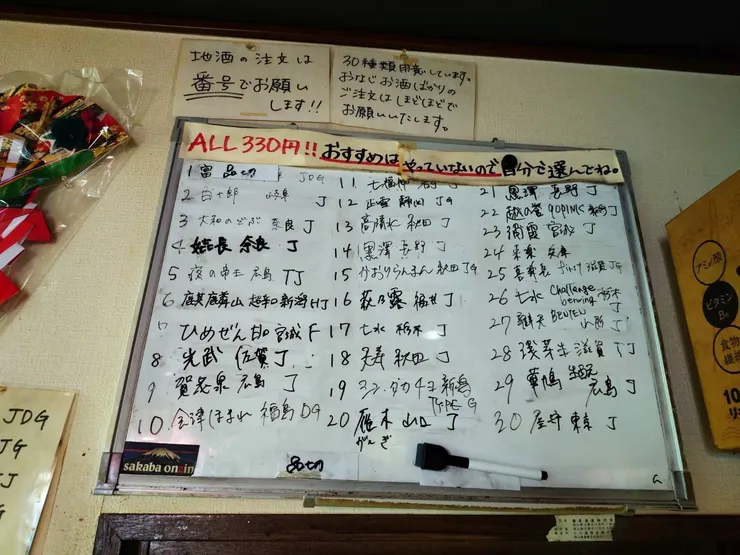 地酒の注文は
番号でお願い
します!!
30種類用意しています。
おなじお酒ばかりの
ご注文はほどほどで
お願いいたします。
ALL 330円!! おすすめは やっていないので自分で選んでね。
1 富 品切 JDG
2 百十郎 岐阜 J
3 大和のどぶ 奈良 J
4 長 奈良 J
5 夜の帝王 広島 TJ
6 麒麟山 超辛口 新潟 HJ
7 ひめぜん 甘口 宮城 F
8 光武 佐賀 J
9 賀茂泉 広島 J
10 会津ほまれ 福島 DG
11 七福神 J
12 正雪 静岡 JG
13 高清水 秋田 J
14 黒澤 長野 J
15 かおりらんまん 秋田 JG
16 萩乃露 福井 J
17 七水 栃木 J
18 秋田 J
19 シン・タカチヨ 新潟
TYPE G
20 雁木 山口 J
がんぎ
21 黒澤 長野 J
22 越の誉 90PINK J
23 浦霞 宮城 J
24 兵庫
25 喜楽長 滋賀 JG
26 七水 Challenge
栃木
27
28 浅茅生 滋賀 TJ
29 華鳩 生酛
広島 J
30 屋守 東京 J
品切
sakaba onzin
JDG
JG
J
アミノ酸
ビタミン
食物
繊維
10